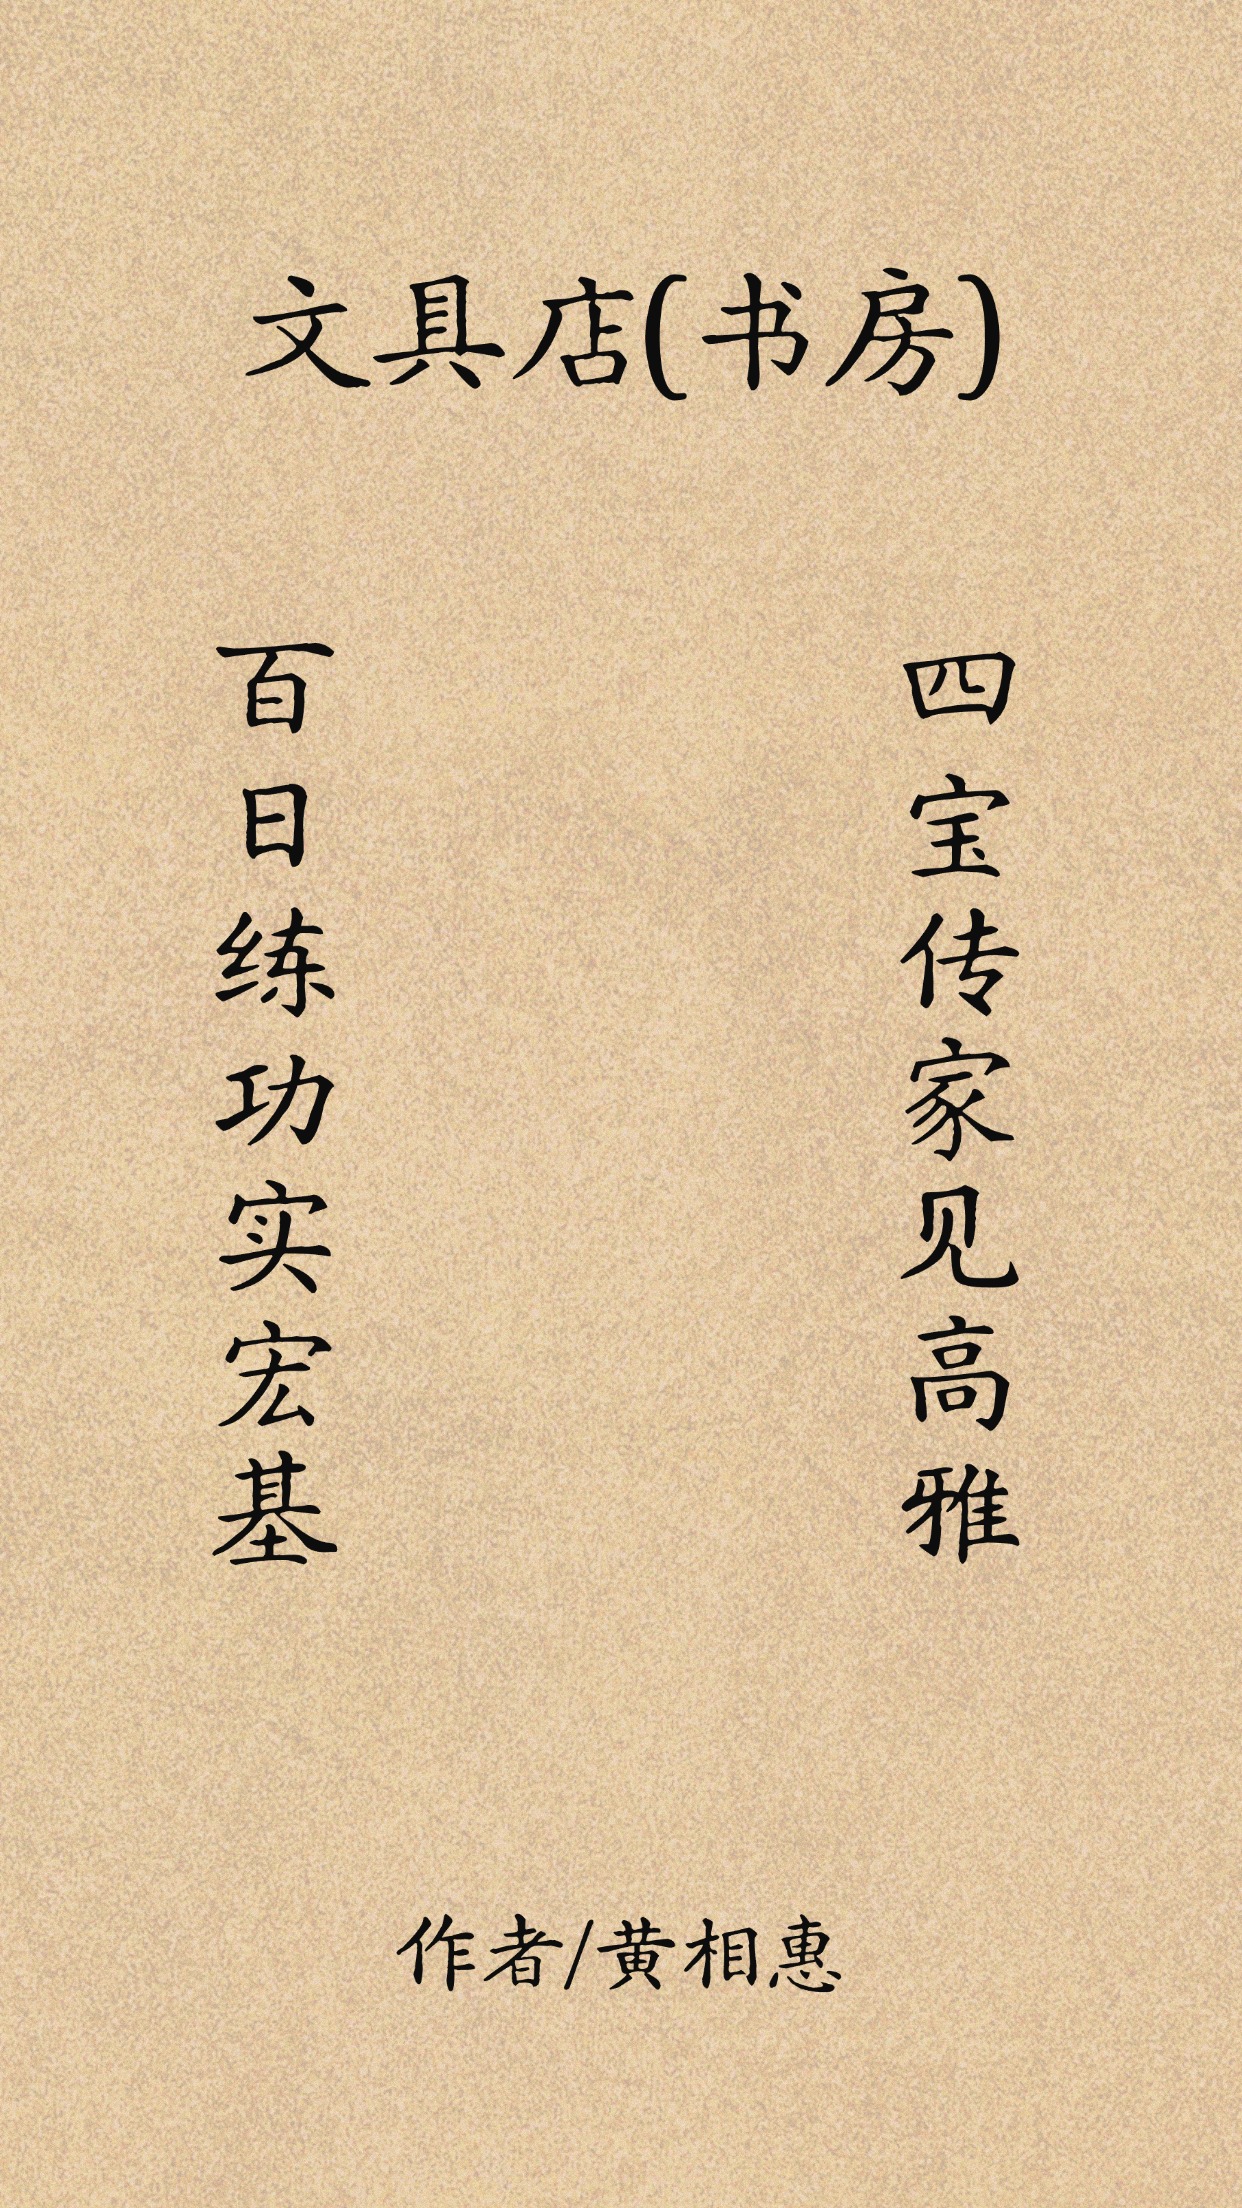 文具店(书房)
四宝传家见高雅
百日练功实宏基
作者/黄相惠